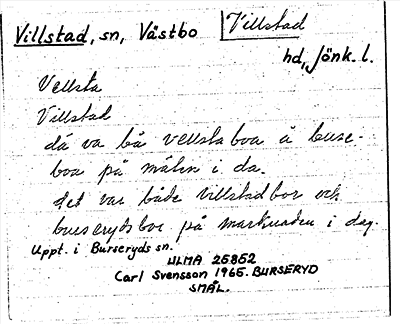 Villstad, sn, Västbo Villstad
hd, Jönk. l.
Vellsta
Villstad
dä va bå vellstaboa å buse-
boa på målen i da.
det var både villstadbor och
burserydsbor på marknaden i dag.
Uppt. i Burseryds sn.
ULMA 25852
Carl Svensson 1965. BURSERYD
SMÅL.